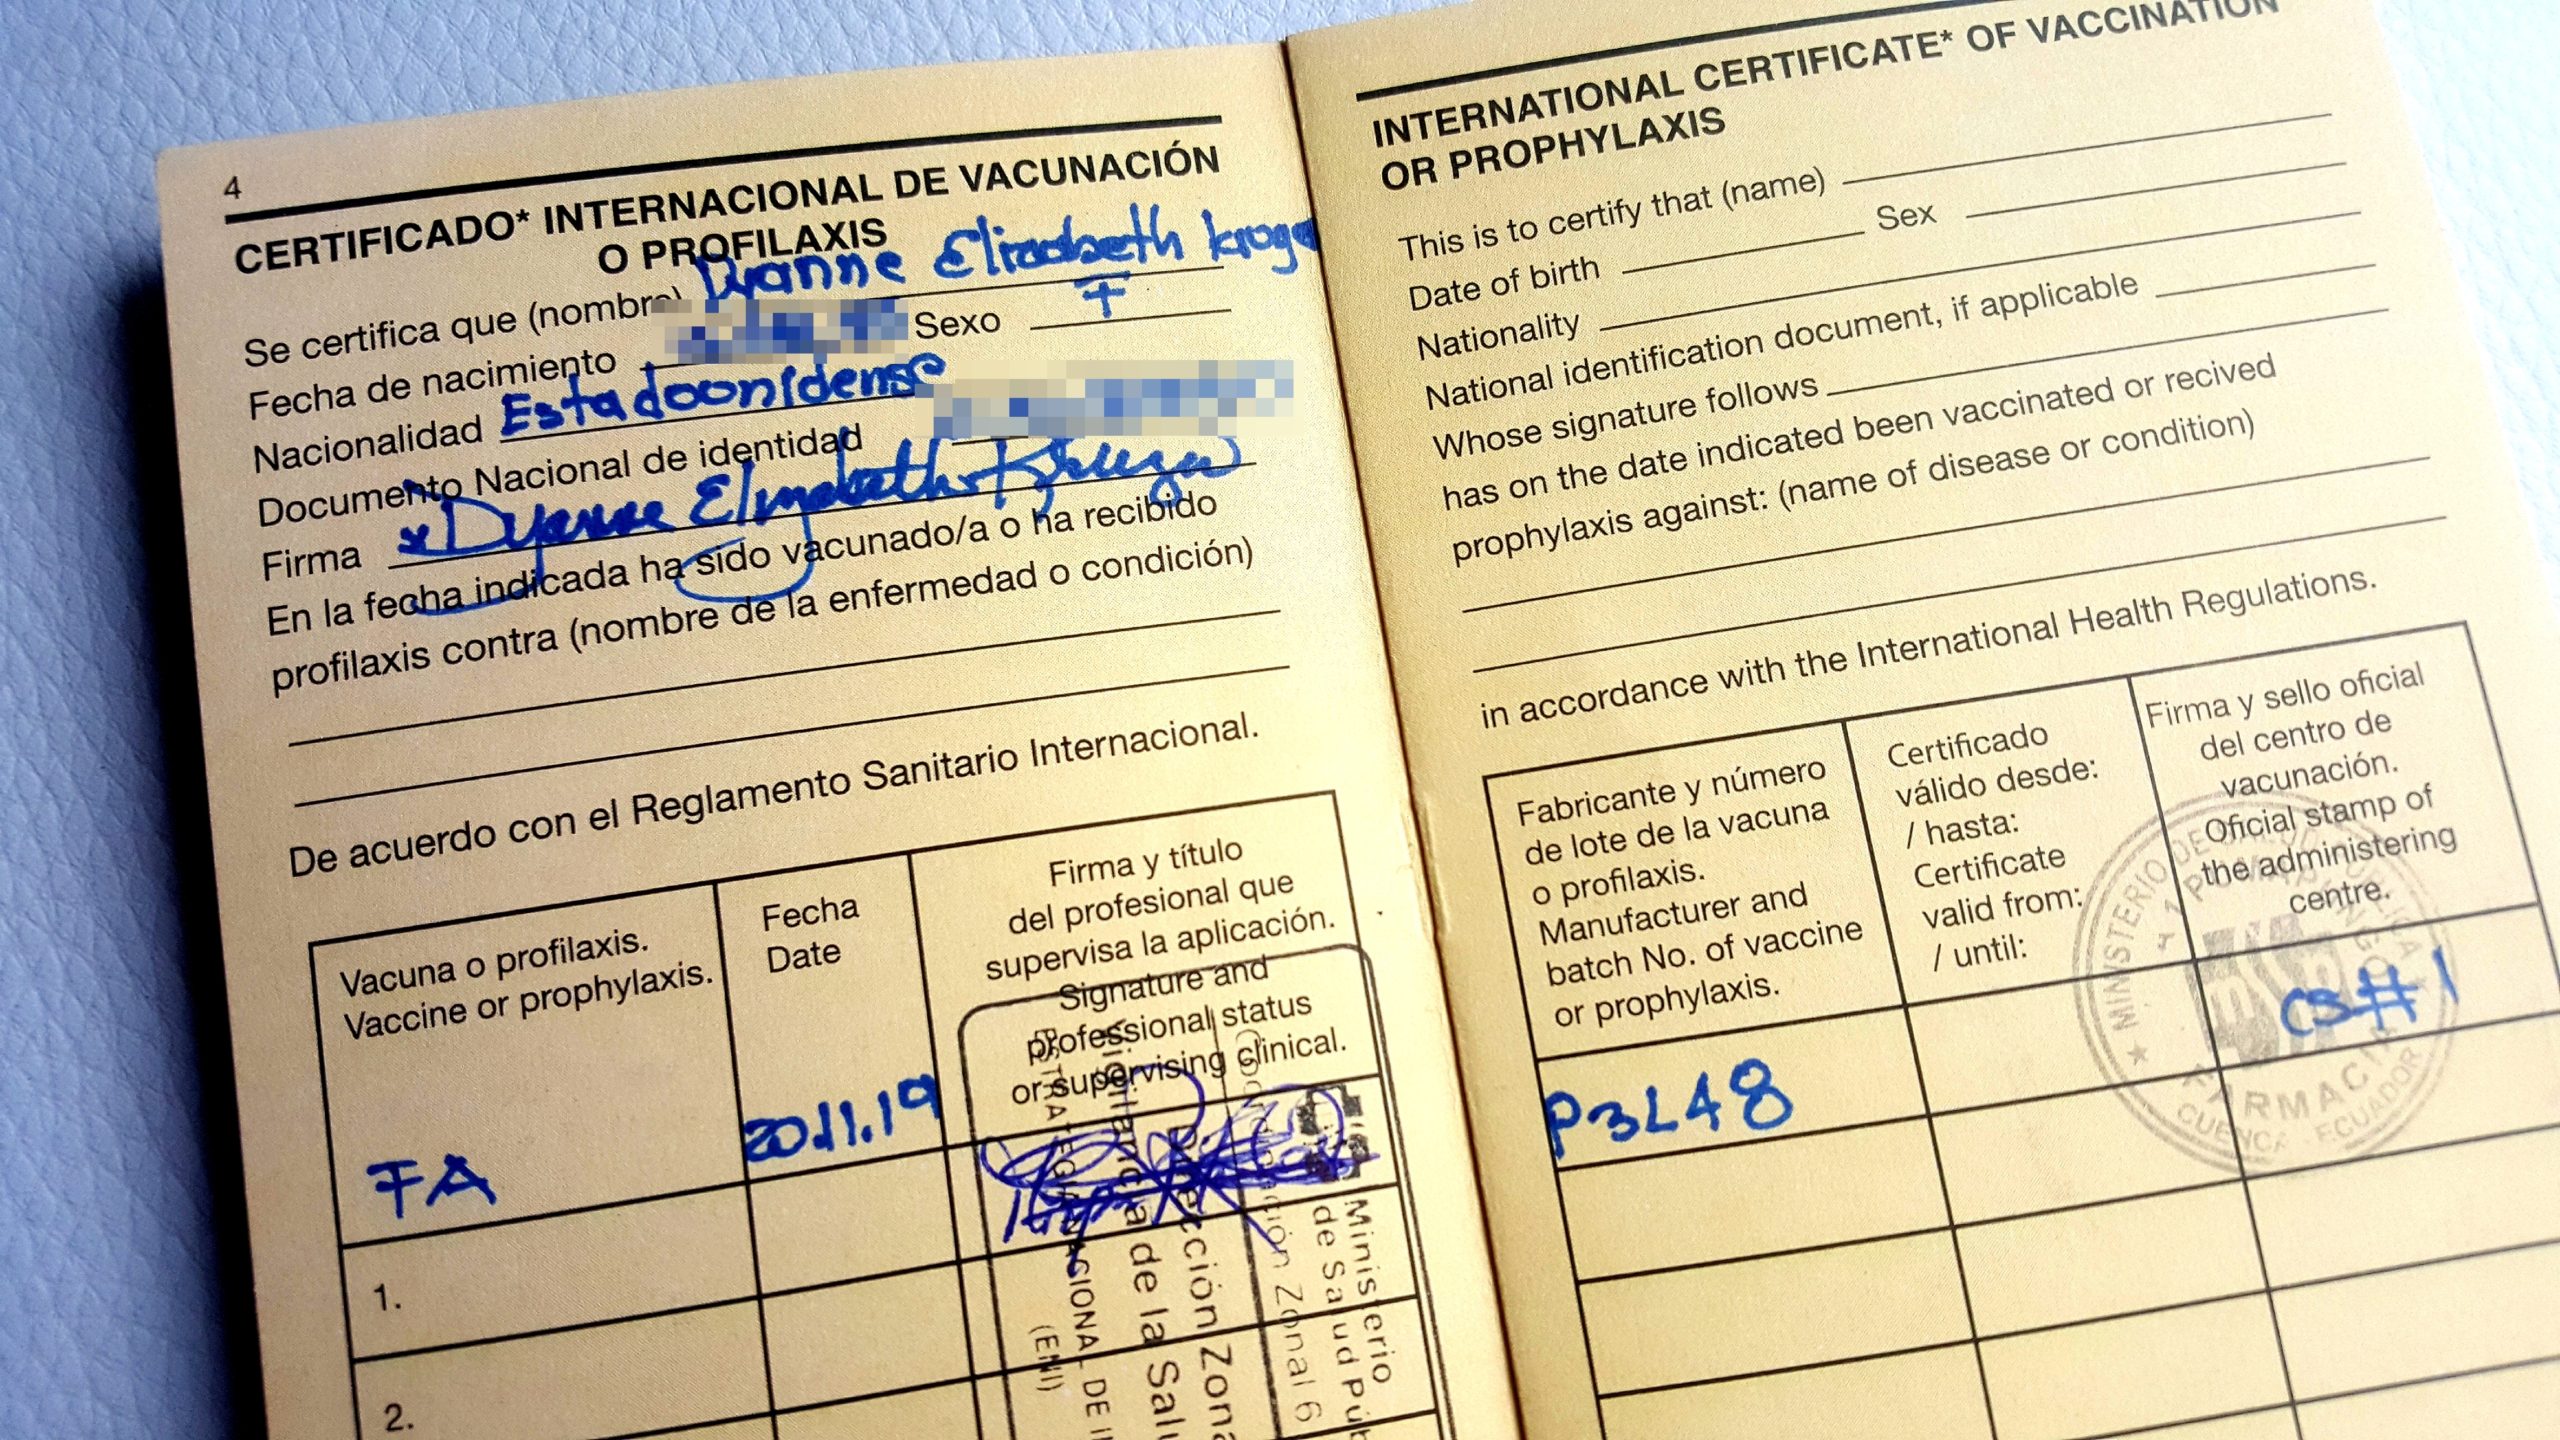 4
CERTIFICADO* INTERNACIONAL DE VACUNACIÓN
O PROFILAXIS
Se certifica que (nombre) Dyanne Elizabeth Kruge
Fecha de nacimiento Sexo F
Nacionalidad Estadounidense
Documento Nacional de identidad
Firma x Dyanne Elizabeth Kruger
En la fecha indicada ha sido vacunado/a o ha recibido
profilaxis contra (nombre de la enfermedad o condición)
De acuerdo con el Reglamento Sanitario Internacional.
Vacuna o profilaxis.
Vaccine or prophylaxis.
Fecha
Date
Firma y título
del profesional que
supervisa la aplicación.
Signature and
professional status
or supervising clinical.
FA
20.11.19
1.
2.
Ministerio
de Salud Púb
Coordinación Zonal 6
Dirección Zona
Vigilancia de la Salu
ESTRATEGIA NACIONAL DE I
(ENI)
INTERNATIONAL CERTIFICATE* OF VACCINATION
OR PROPHYLAXIS
This is to certify that (name)
Date of birth Sex
Nationality
National identification document, if applicable
Whose signature follows
has on the date indicated been vaccinated or recived
prophylaxis against: (name of disease or condition)
in accordance with the International Health Regulations.
Fabricante y número
de lote de la vacuna
o profilaxis.
Manufacturer and
batch No. of vaccine
or prophylaxis.
Certificado
válido desde:
/ hasta:
Certificate
valid from:
/ until:
Firma y sello oficial
del centro de
vacunación.
Oficial stamp of
the administering
centre.
P3L48
CS#1
MINISTERIO DE SALUD PUBLICA
FARMACIA
CUENCA - ECUADOR